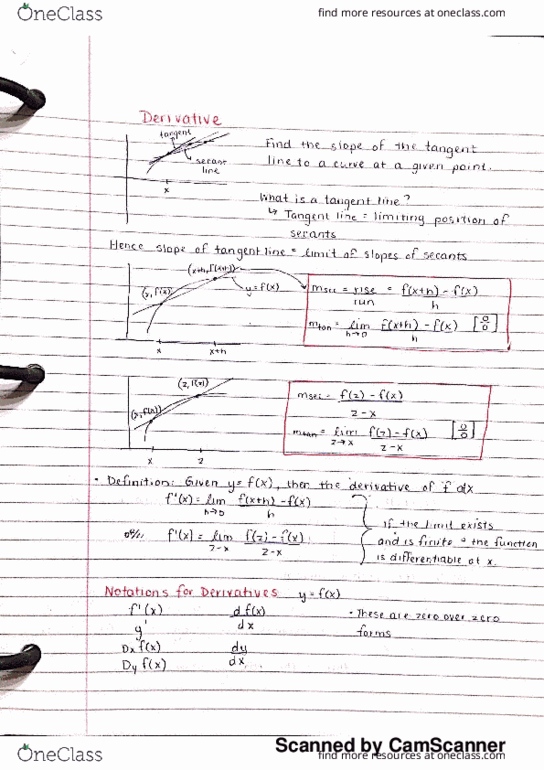 OneClass
find more resources at oneclass.com
Derivative
tangent
secant
line
x
Find the slope of the tangent
line to a curve at a given point.
What is a tangent line?
↳ Tangent line = limiting position of
secants
Hence slope of tangent line = limit of slopes of secants
(x+h, f(x+h))
y=f(x)
x
x+h
msec = rise = f(x+h) - f(x)
run h
mtan = lim f(x+h) - f(x) [0/0]
h→0 h
(z, f(x))
(x, f(x))
x
z
msec = f(z) - f(x)
z-x
mtan = lim f(z) - f(x) [0/0]
z→x z-x
• Definition: Given y = f(x), then the derivative of f
f'(x) = lim f(x+h) - f(x)
h→0 h
f'(x) = lim f(z) - f(x)
z-x z-x
if the limit exists
and is finite = the function
is differentiable at x.
Notations for Derivatives y = f(x)
f'(x) d f(x)
dx
y'
Dx f(x) dy
dx
Dy f(x)
• These are zero over zero
forms
Scanned by CamScanner
OneClass
find more resources at oneclass.com